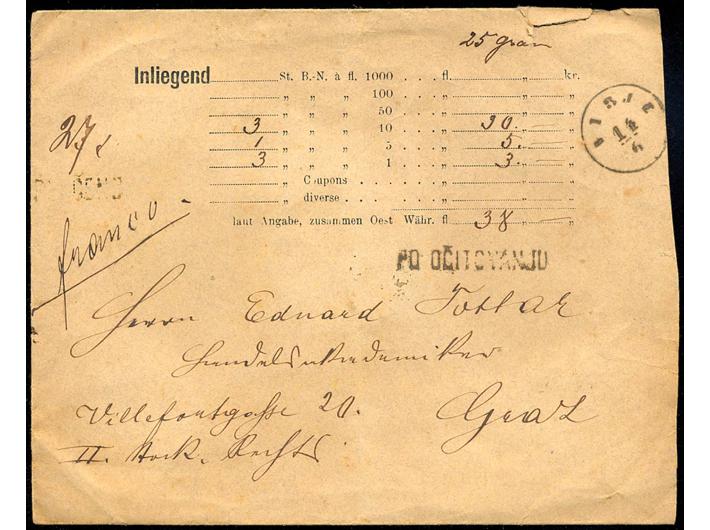 25 gram
Inliegend St. B.-N. à fl. 1000 . . . fl. „ kr.
„ „ „ 100 . . . „ „
„ „ „ 50 . . . „ „
3 „ „ „ 10 . . . „ 30. „
1 „ „ „ 5 . . . „ 5. „
3 „ „ „ 1 . . . „ 3. „
„ Coupons . . . . „ „
„ diverse . . . . „ „
laut Angabe, zusammen Oest Währ. fl 38 „
franco
PO OČITOVANJU
Herrn Eduard
Handelsakademiker
20. Graz
II. Stock. Rechts